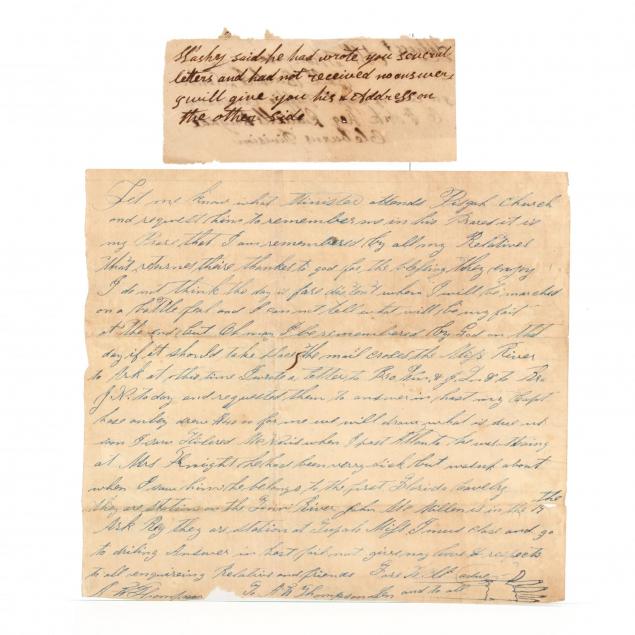 Washey said he had wrote you several
letters and had not received no answer
I will give you his Address on
the other Side
Let me know what Minister attends Pisgah Church
and request him to remember me in his it is
my that I am remembered by all my Relatives
that returnes their thanks to god for the blessing they enjoy
I do not think the day is fare when I will be marched
on a battle and I can not tell what will be my fait
at the end but Oh may I be remembered by God on that
day if it should take place the mail croses the Miss River
to Ark at this time I wrote a letter to Bro & J. L. & to Bro
J. N. today and requested them to answer in hast my Capt
has only drew for me we will draw what is due us
soon I saw when I past Atlanta he was staing
at Mrs Knight he had been very sick but was up about
when I saw him he belongs to the first Florida Cavelry
they are station on the Tenn River John Mc Millen is in the 19 the
Ark Reg they are station at Tupalo Miss I must close and go
to driling Answer in hast fail not give my love & respects
to all enquireing Relative and friends Fare
Thompson To Thompson and to all